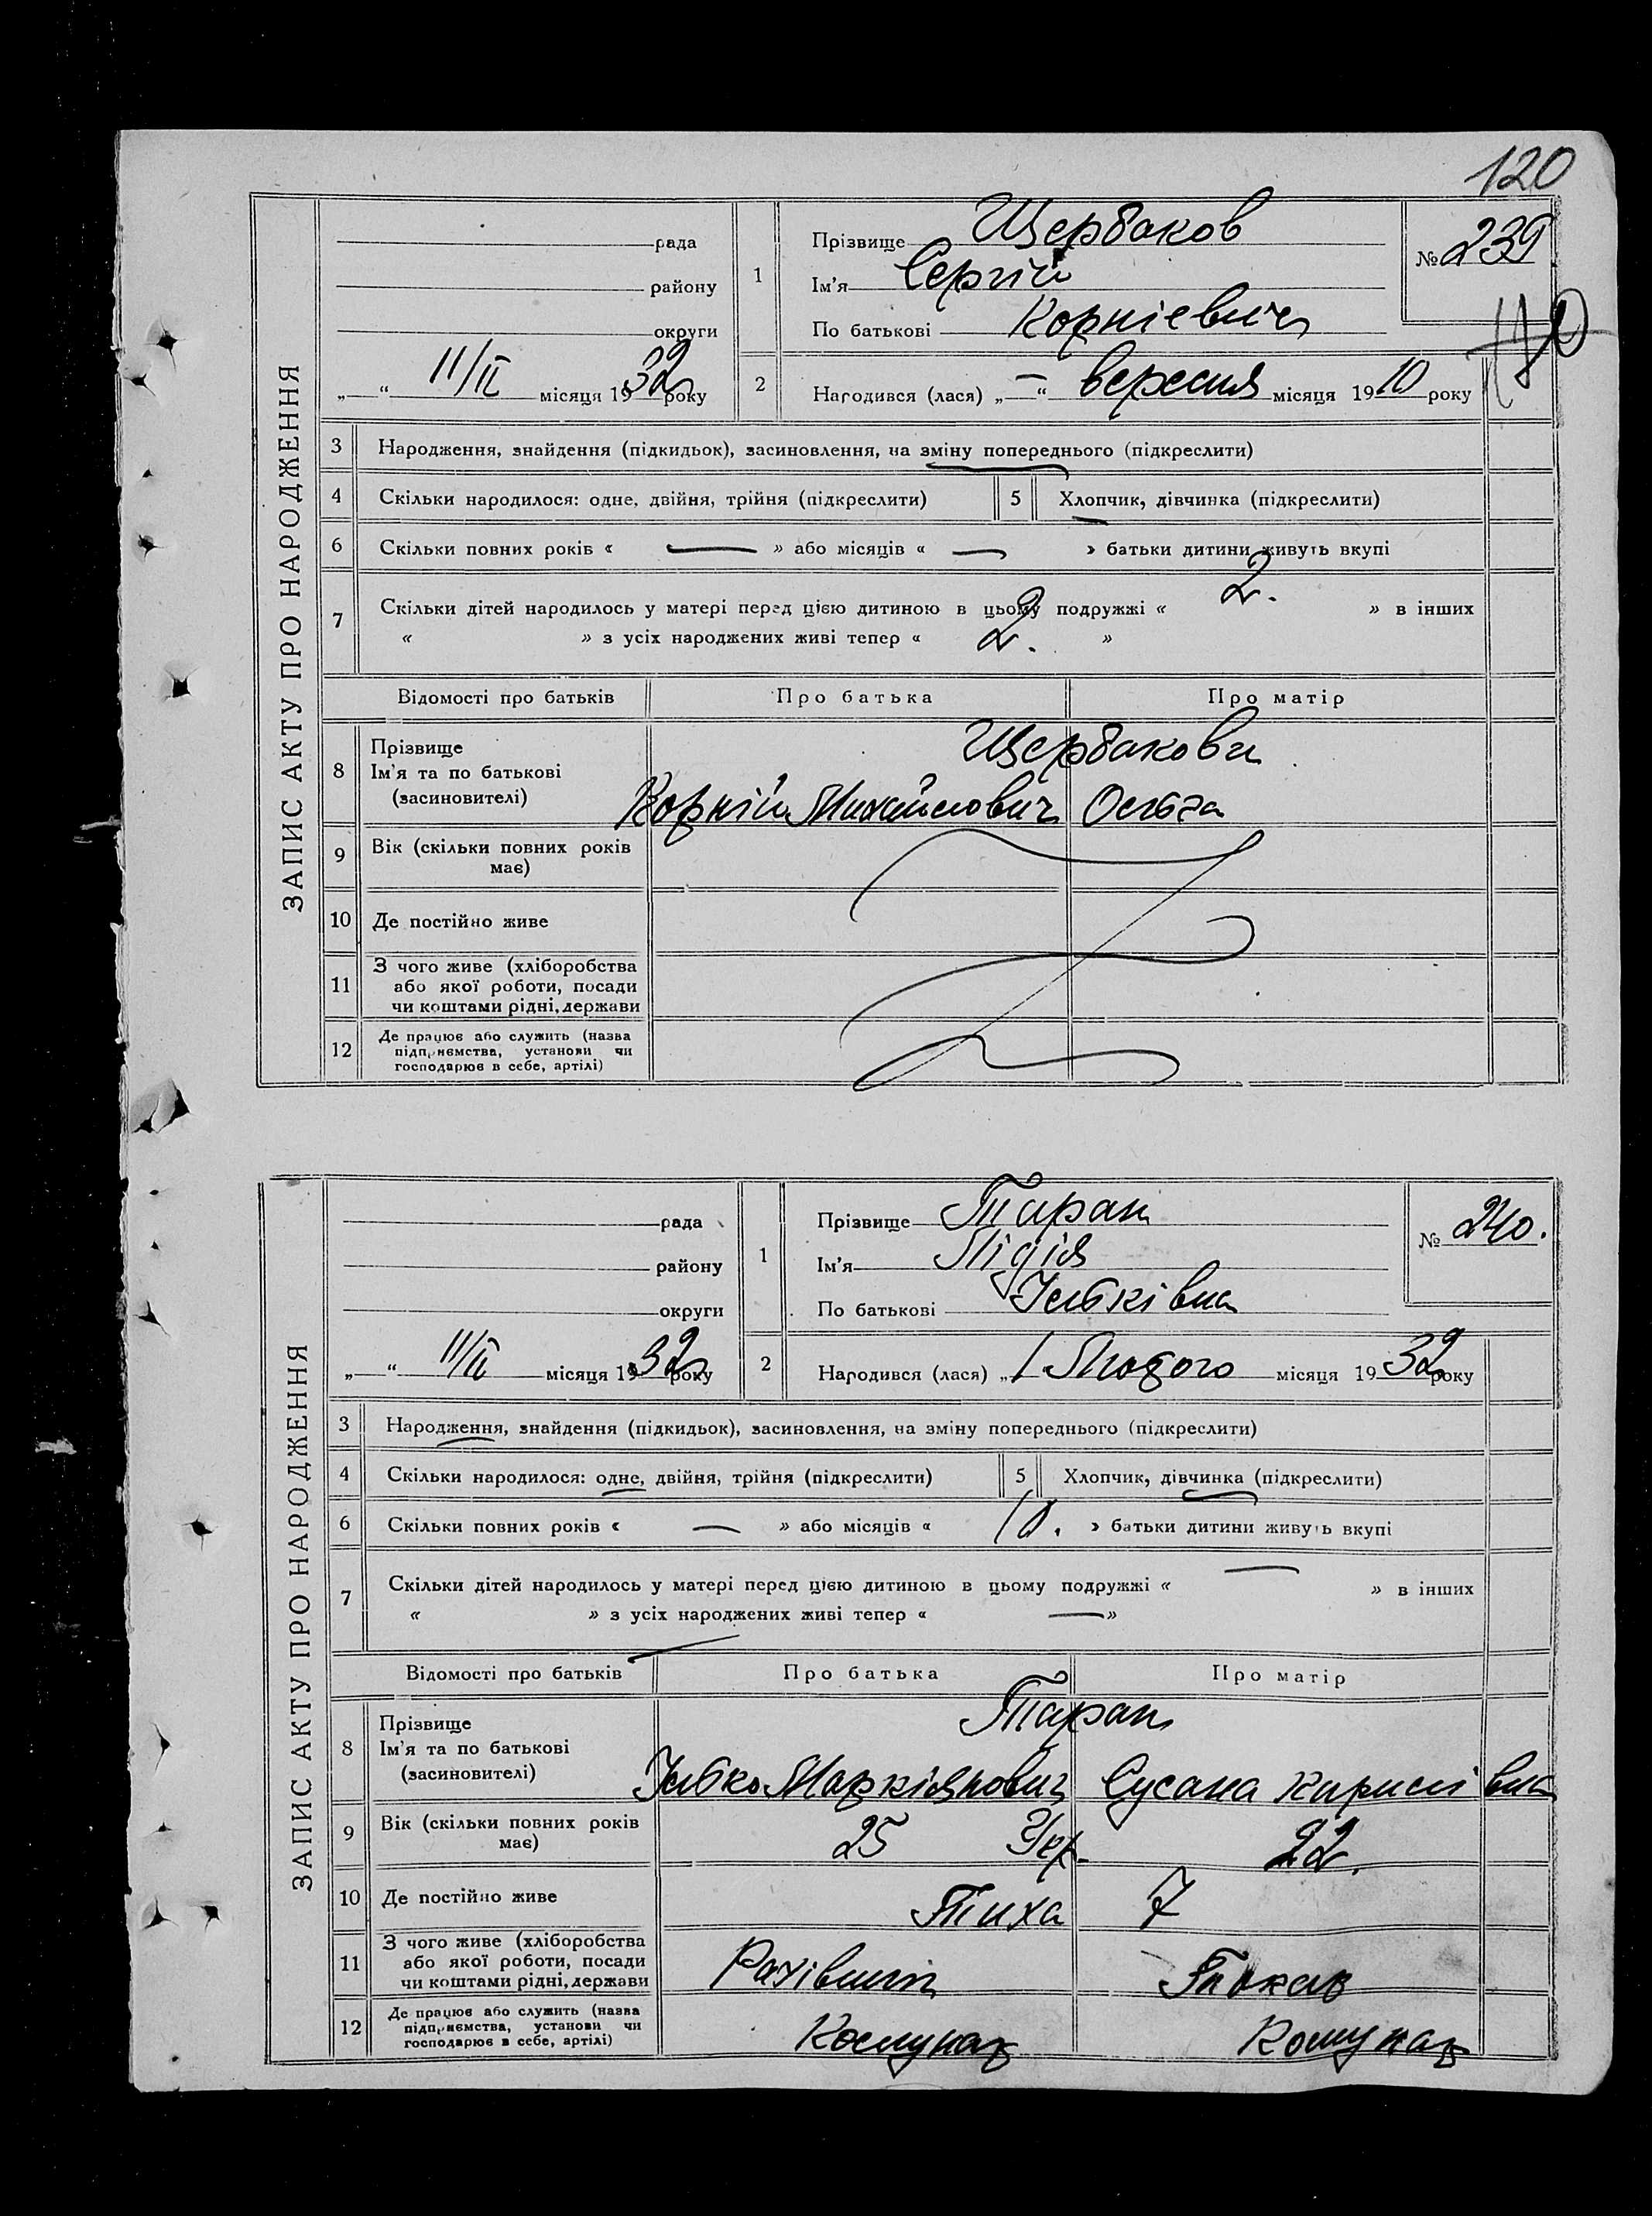 120
ЗАПИС АКТУ ПРО НАРОДЖЕННЯ
рада
району
округи
„ “ 11/II місяця 1932 року
1
Прізвище Щербаков
Ім'я Сергій
По батькові Корнієвич
№ 239
2
Народився (лася) „—“ вересня місяця 1910 року
3 Народження, знайдення (підкидьок), засиновлення, на зміну попереднього (підкреслити)
4 Скільки народилося: одне, двійня, трійня (підкреслити) 5 Хлопчик, дівчинка (підкреслити)
6 Скільки повних років « — » або місяців « — » батьки дитини живуть вкупі
7 Скільки дітей народилось у матері перед цією дитиною в цьому подружжі « 2. » в інших
« » з усіх народжених живі тепер « 2. »
Відомості про батьків Про батька Про матір
8 Прізвище
Ім'я та по батькові
(засиновителі)
Щербакови
Корній Михайлович Ольга
9 Вік (скільки повних років
має)
10 Де постійно живе
11 З чого живе (хліборобства
або якої роботи, посади
чи коштами рідні, держави
12 Де працює або служить (назва
підприємства, установи чи
господарює в себе, артілі)
ЗАПИС АКТУ ПРО НАРОДЖЕННЯ
рада
району
округи
„ “ 11/II місяця 1932 року
1
Прізвище Таран
Ім'я Лідія
По батькові Юльківна
№ 240.
2
Народився (лася) „1 Лютого місяця 1932 року
3 Народження, знайдення (підкидьок), засиновлення, на зміну попереднього (підкреслити)
4 Скільки народилося: одне, двійня, трійня (підкреслити) 5 Хлопчик, дівчинка (підкреслити)
6 Скільки повних років « — » або місяців « 10. » батьки дитини живуть вкупі
7 Скільки дітей народилось у матері перед цією дитиною в цьому подружжі « — » в інших
« » з усіх народжених живі тепер « — »
Відомості про батьків Про батька Про матір
8 Прізвище
Ім'я та по батькові
(засиновителі)
Таран
Юлько Маркіянович Сусана Кирилівна
9 Вік (скільки повних років
має)
25 Укр. 22.
10 Де постійно живе
Тиха 7
11 З чого живе (хліборобства
або якої роботи, посади
чи коштами рідні, держави
Токар
12 Де працює або служить (назва
підприємства, установи чи
господарює в себе, артілі)